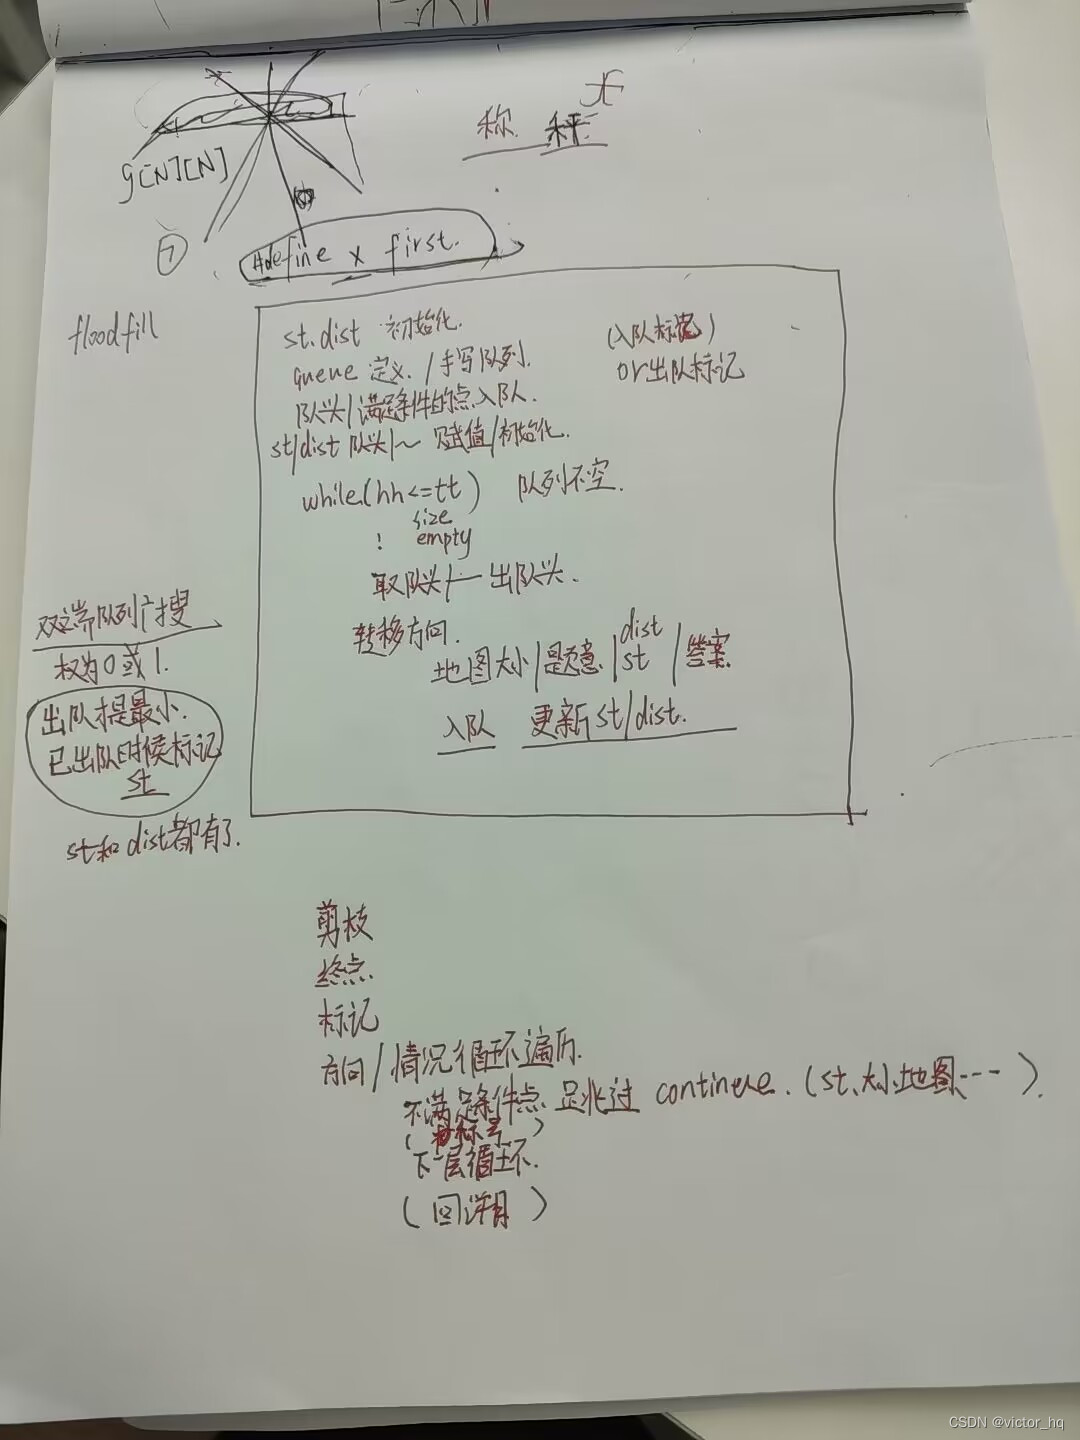 称 秤
g[N][N]
7
#define x first.
floodfill
st.dist 初始化.
(入队标记)
queue 定义. / 手写队列.
or出队标记
队头/满足条件的点入队.
st/dist 队头/~ 赋值/初始化.
while(hh<=tt) 队列不空.
size
! empty
取队头 + 出队头.
转移方向.
dist
地图大小/题意/st/答案
入队 更新st/dist.
双端队列广搜
权为0或1.
出队才是最小.
已出队时候标记
st
st和dist都有了.
剪枝
终点.
标记
方向/情况循环遍历.
不满足条件点 跳过 continue.(st、大小、地图、…).
下一层循环.
(回溯)
CSDN @victor_hq